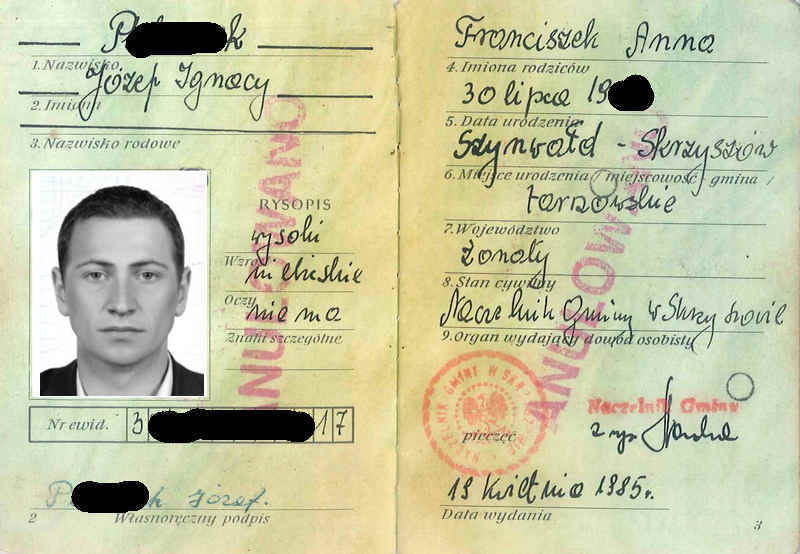 1. Nazwisko
Józef Ignacy
2. Imiona
3. Nazwisko rodowe
RYSOPIS
wysoki
Wzrost
niebieskie
Oczy
nie ma
Znaki szczególne
ANULOWANO
Nr ewid. 3 17
Józef.
2 Własnoręczny podpis
Franciszek Anna
4. Imiona rodziców
30 lipca 19
5. Data urodzenia
Szynwałd - Skrzyszów
6. Miejsce urodzenia / miejscowość gmina /
tarnowskie
7. Województwo
żonaty
8. Stan cywilny
Naczelnik Gminy w Skrzyszowie
9. Organ wydający dowód osobisty
ANULOWANO
NACZELNIK GMINY W SKRZYSZOWIE
Naczelnik Gminy
pieczęć
19 kwietnia 1985r.
Data wydania
3